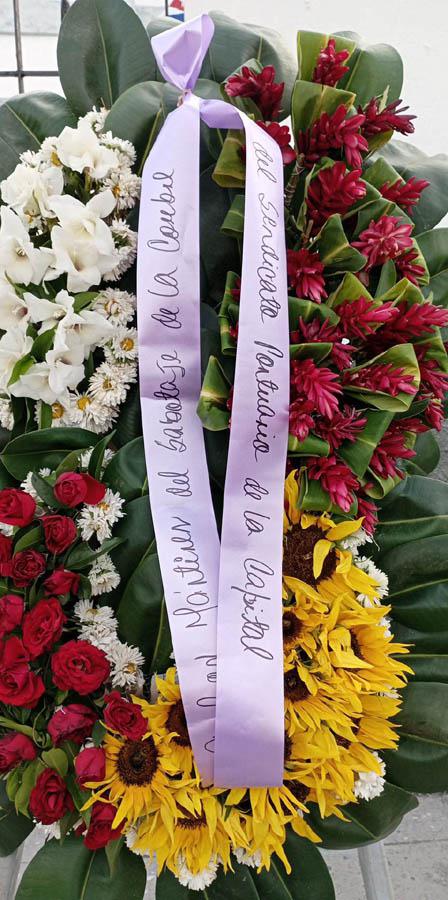 Mártires del Sabotaje de la Coubre
del Sindicato Portuario de la Capital